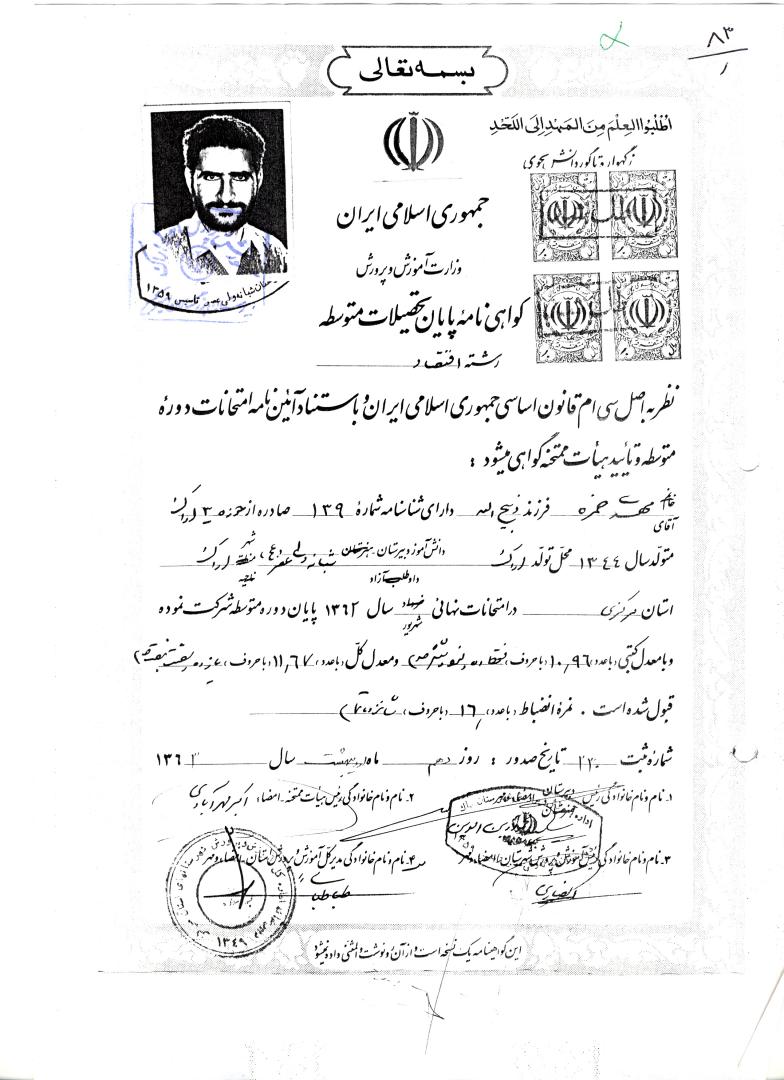 ۸۳
بسمه تعالی
اُطْلُبُوا العِلْمَ مِنَ المَهْدِ اِلَی اللَّحَدِ
زگهواره تا گور دانش بجوی
جمهوری اسلامی ایران
وزارت آموزش و پرورش
گواهی نامۀ پایان تحصیلات متوسطه
رشته اقتصاد
نظر به اصل سی ام قانون اساسی جمهوری اسلامی ایران و با استناد آئین نامه امتحانات دورۀ
متوسطه و تأیید هیأت ممتحنه گواهی میشود :
خانم آقای مهدی حمزه فرزند ذبیح اله دارای شناسنامه شمارۀ ۱۳۹ صادره از حوزه ۳ اراک
متولد سال ۱۳۴۴ محل تولد اراک دانش آموز دبیرستان هنرستان داوطلب آزاد شبانه ولی عصر (عج) شهر منطقه ناحیه اراک
استان مرکزی در امتحانات نهائی خرداد شهریور سال ۱۳۶۲ پایان دوره متوسطه شرکت نموده
و با معدل کتبی (با عدد) ۱۰,۹۶ (با حروف) و معدل کل (با عدد) ۱۱,۶۷ (با حروف)
قبول شده است . نمرۀ انضباط (با عدد) ۱۶ (با حروف) شانزده تمام
شمارۀ ثبت تاریخ صدور : روز دهم ماه اردیبهشت سال ۱۳۶۳
۱- نام و نام خانوادگی رئیس دبیرستان
۲- نام و نام خانوادگی رئیس هیأت ممتحنه - امضاء اکبر
۳- نام و نام خانوادگی رئیس آموزش و پرورش شهرستان - امضاء و مهر
۴- نام و نام خانوادگی مدیر کل آموزش و پرورش استان - امضاء و مهر
انصاری
طباطبا
۱۳۴۹
این گواهینامه یک نسخه است و از آن رونوشت و المثنی داده نمیشود